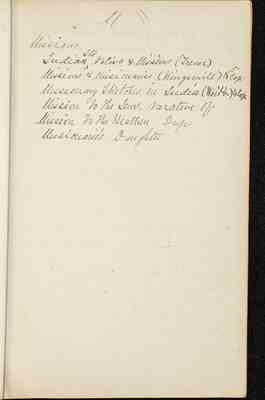 Missions
Indian, Its Natives & Missions (Trevor)
Missions & Missionaries (Kingsmill) 2 Cop
Missionary Sketches in India (Weitb.) 2 Cop
Mission to the Jews, Narative of
Mission to the
Missionaries Daughter